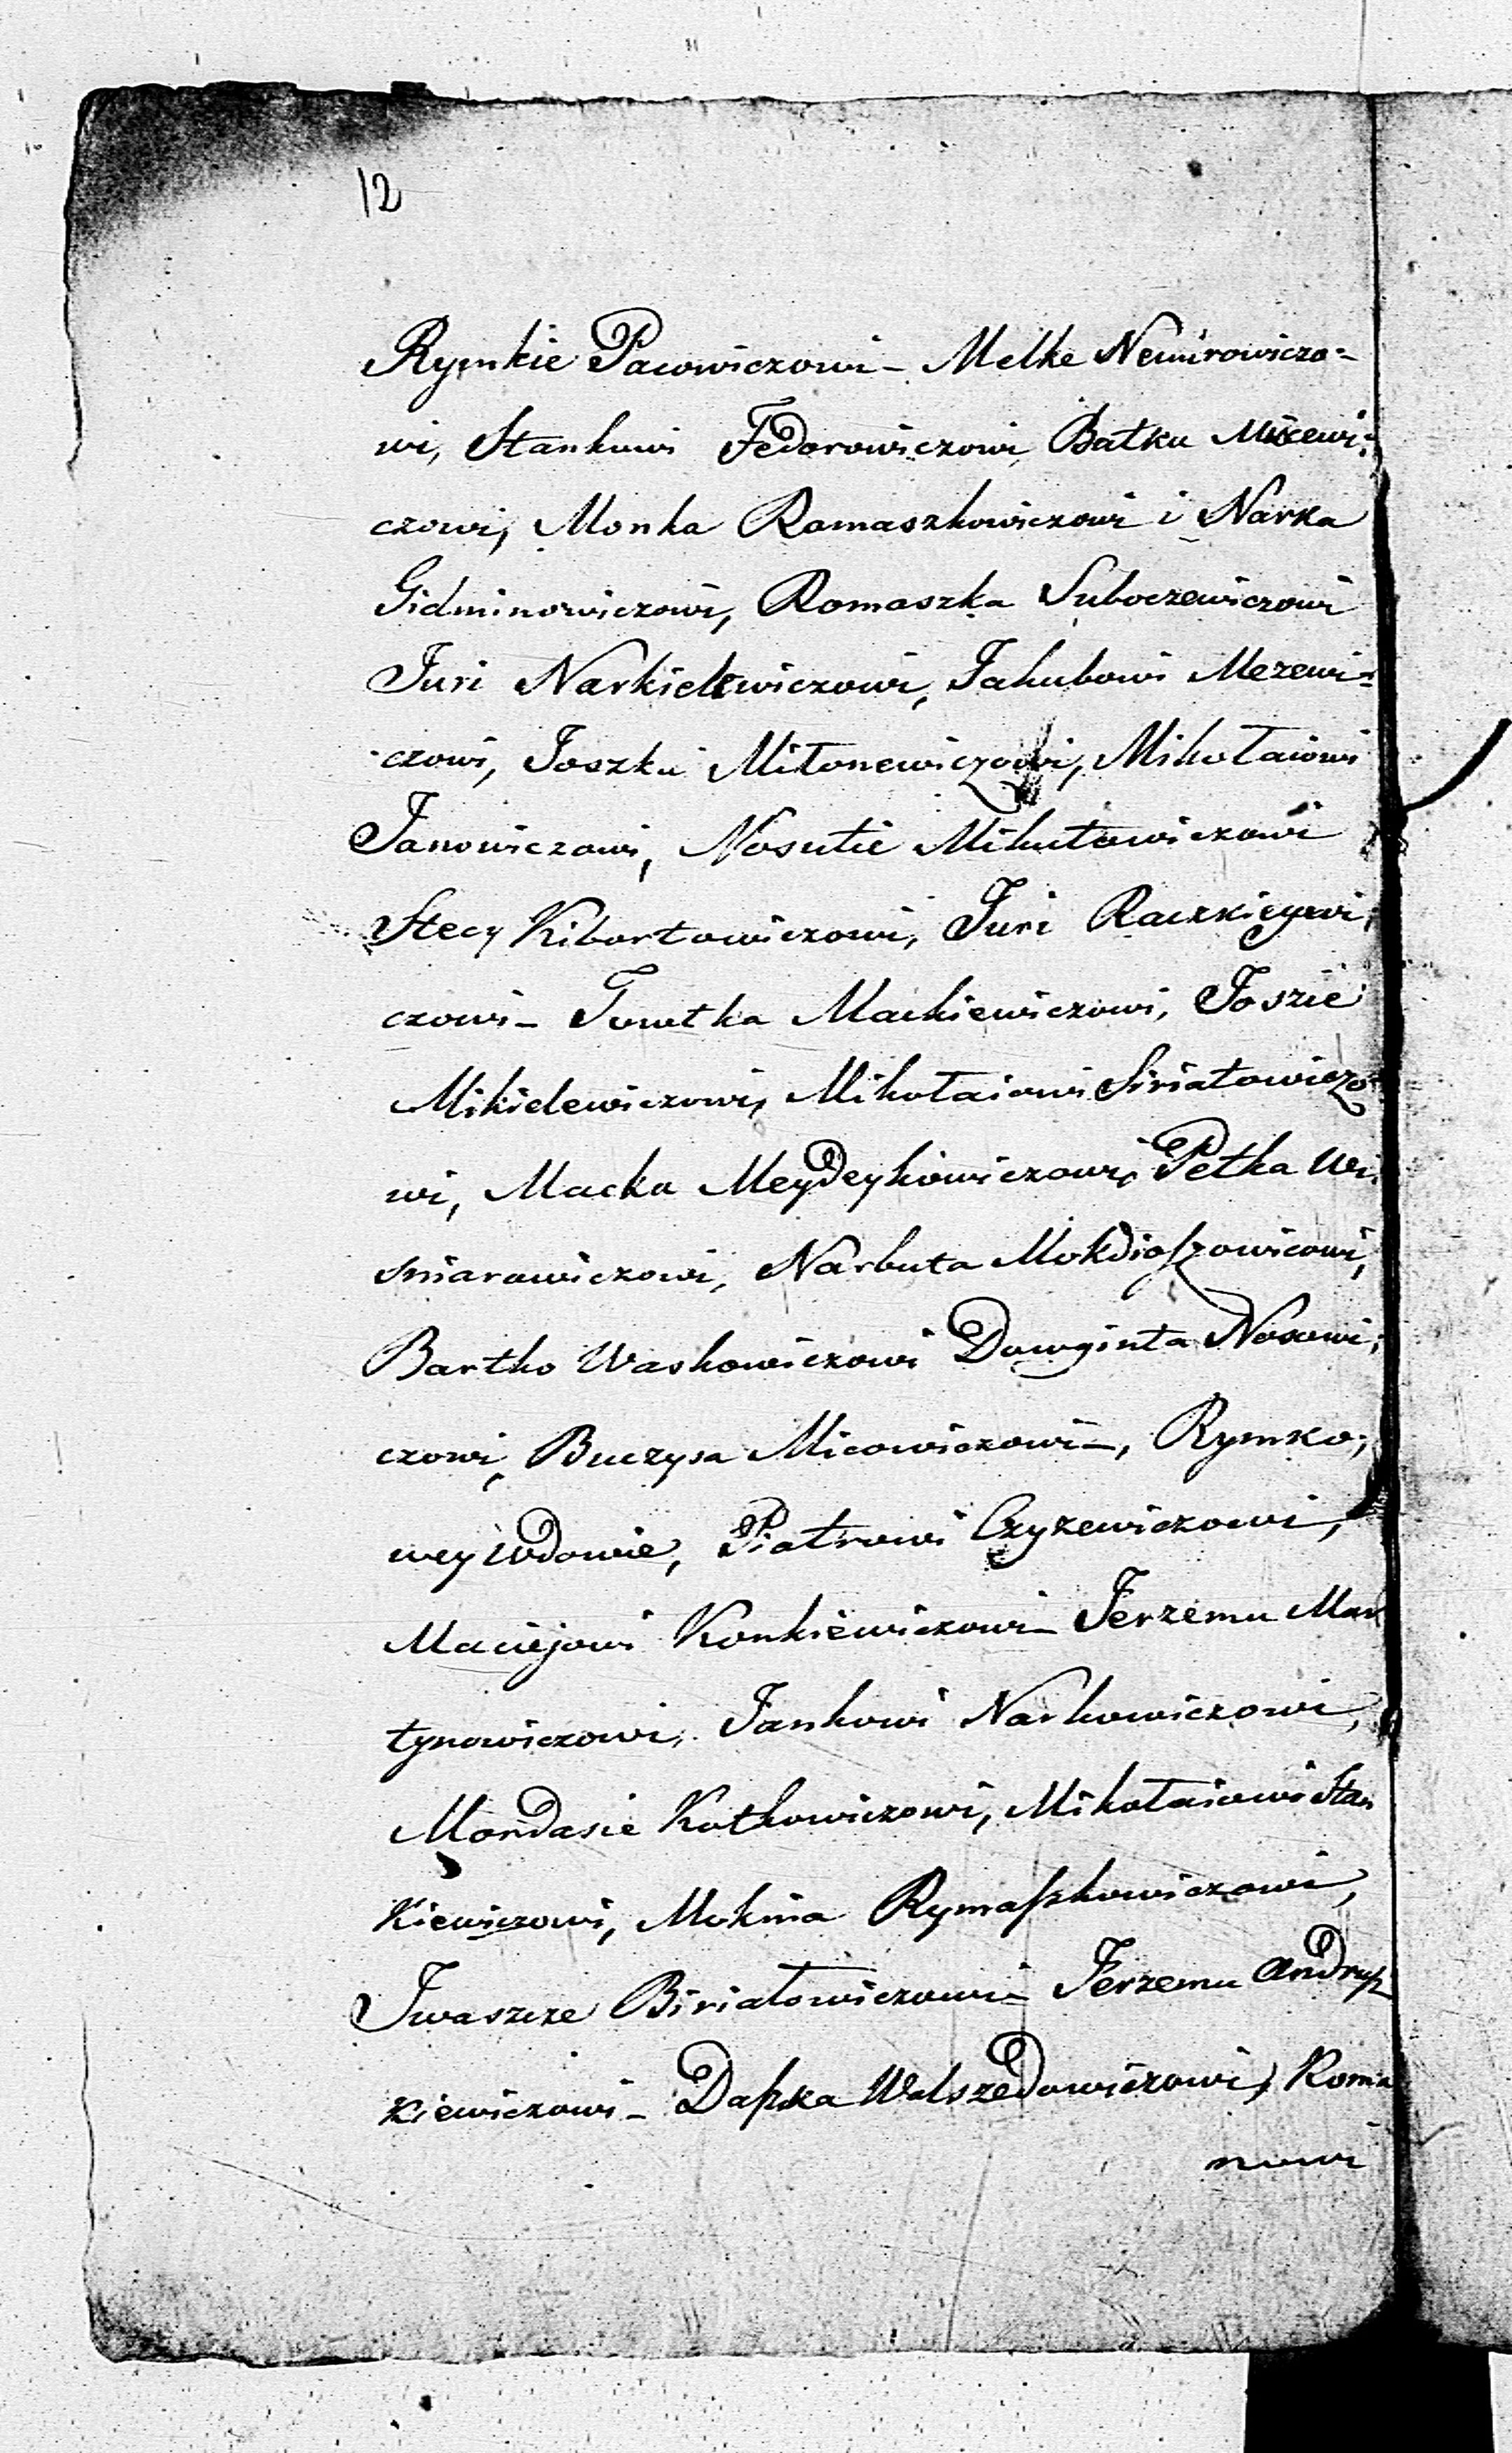 12
Rymkie Pacowiczowi – Melke Newirowiczo=
wi, Stankowi Fedorowiczowi, Batku Micewi:
czowi, Monka Romaszkowiczowi i Narka
Gidminowiczowi, Romaszka Suboczewiczowi
Juri Narkielewiczowi, Jakubowi Mezewi=
czowi, Joszku Mitonewiczowi, Mikołaiowi
Janowiczowi, Nosutie Mikutowiczowi
Stecy Kibortowiczowi, Juri Raczkieywi,
czowi – Towtka Mackiewiczowi, Joszie
Mikielewiczowi, Mikołaiowi Siriatowiczo=
wi, Macka Meydeykowiczowi, Petka Wi
sniarowiczowi, Narbuta Mokdioſzowicowi,
Bartko Waskowiczowi Dowginta Nosowi;
czowi, Buczysa Micowiczowi –, Rymko;
wey Wdowie, Piotrowi Czyzewiczowi,
Maciejowi Konkiewiczowi – Jerzemu Mar
tynowiczowi, Jankowi Narkowiczowi,
Mordasie Kotkowiczowi, Mikołaiowi Stan
Kiewiczowi, Mokina Rymaſzkowiczowi,
Jwaszze Biriatowiczowi – Jerzemu Andruſz
Kiewiczowi – Daſzka Walszedowiczowi, Roma
nowi